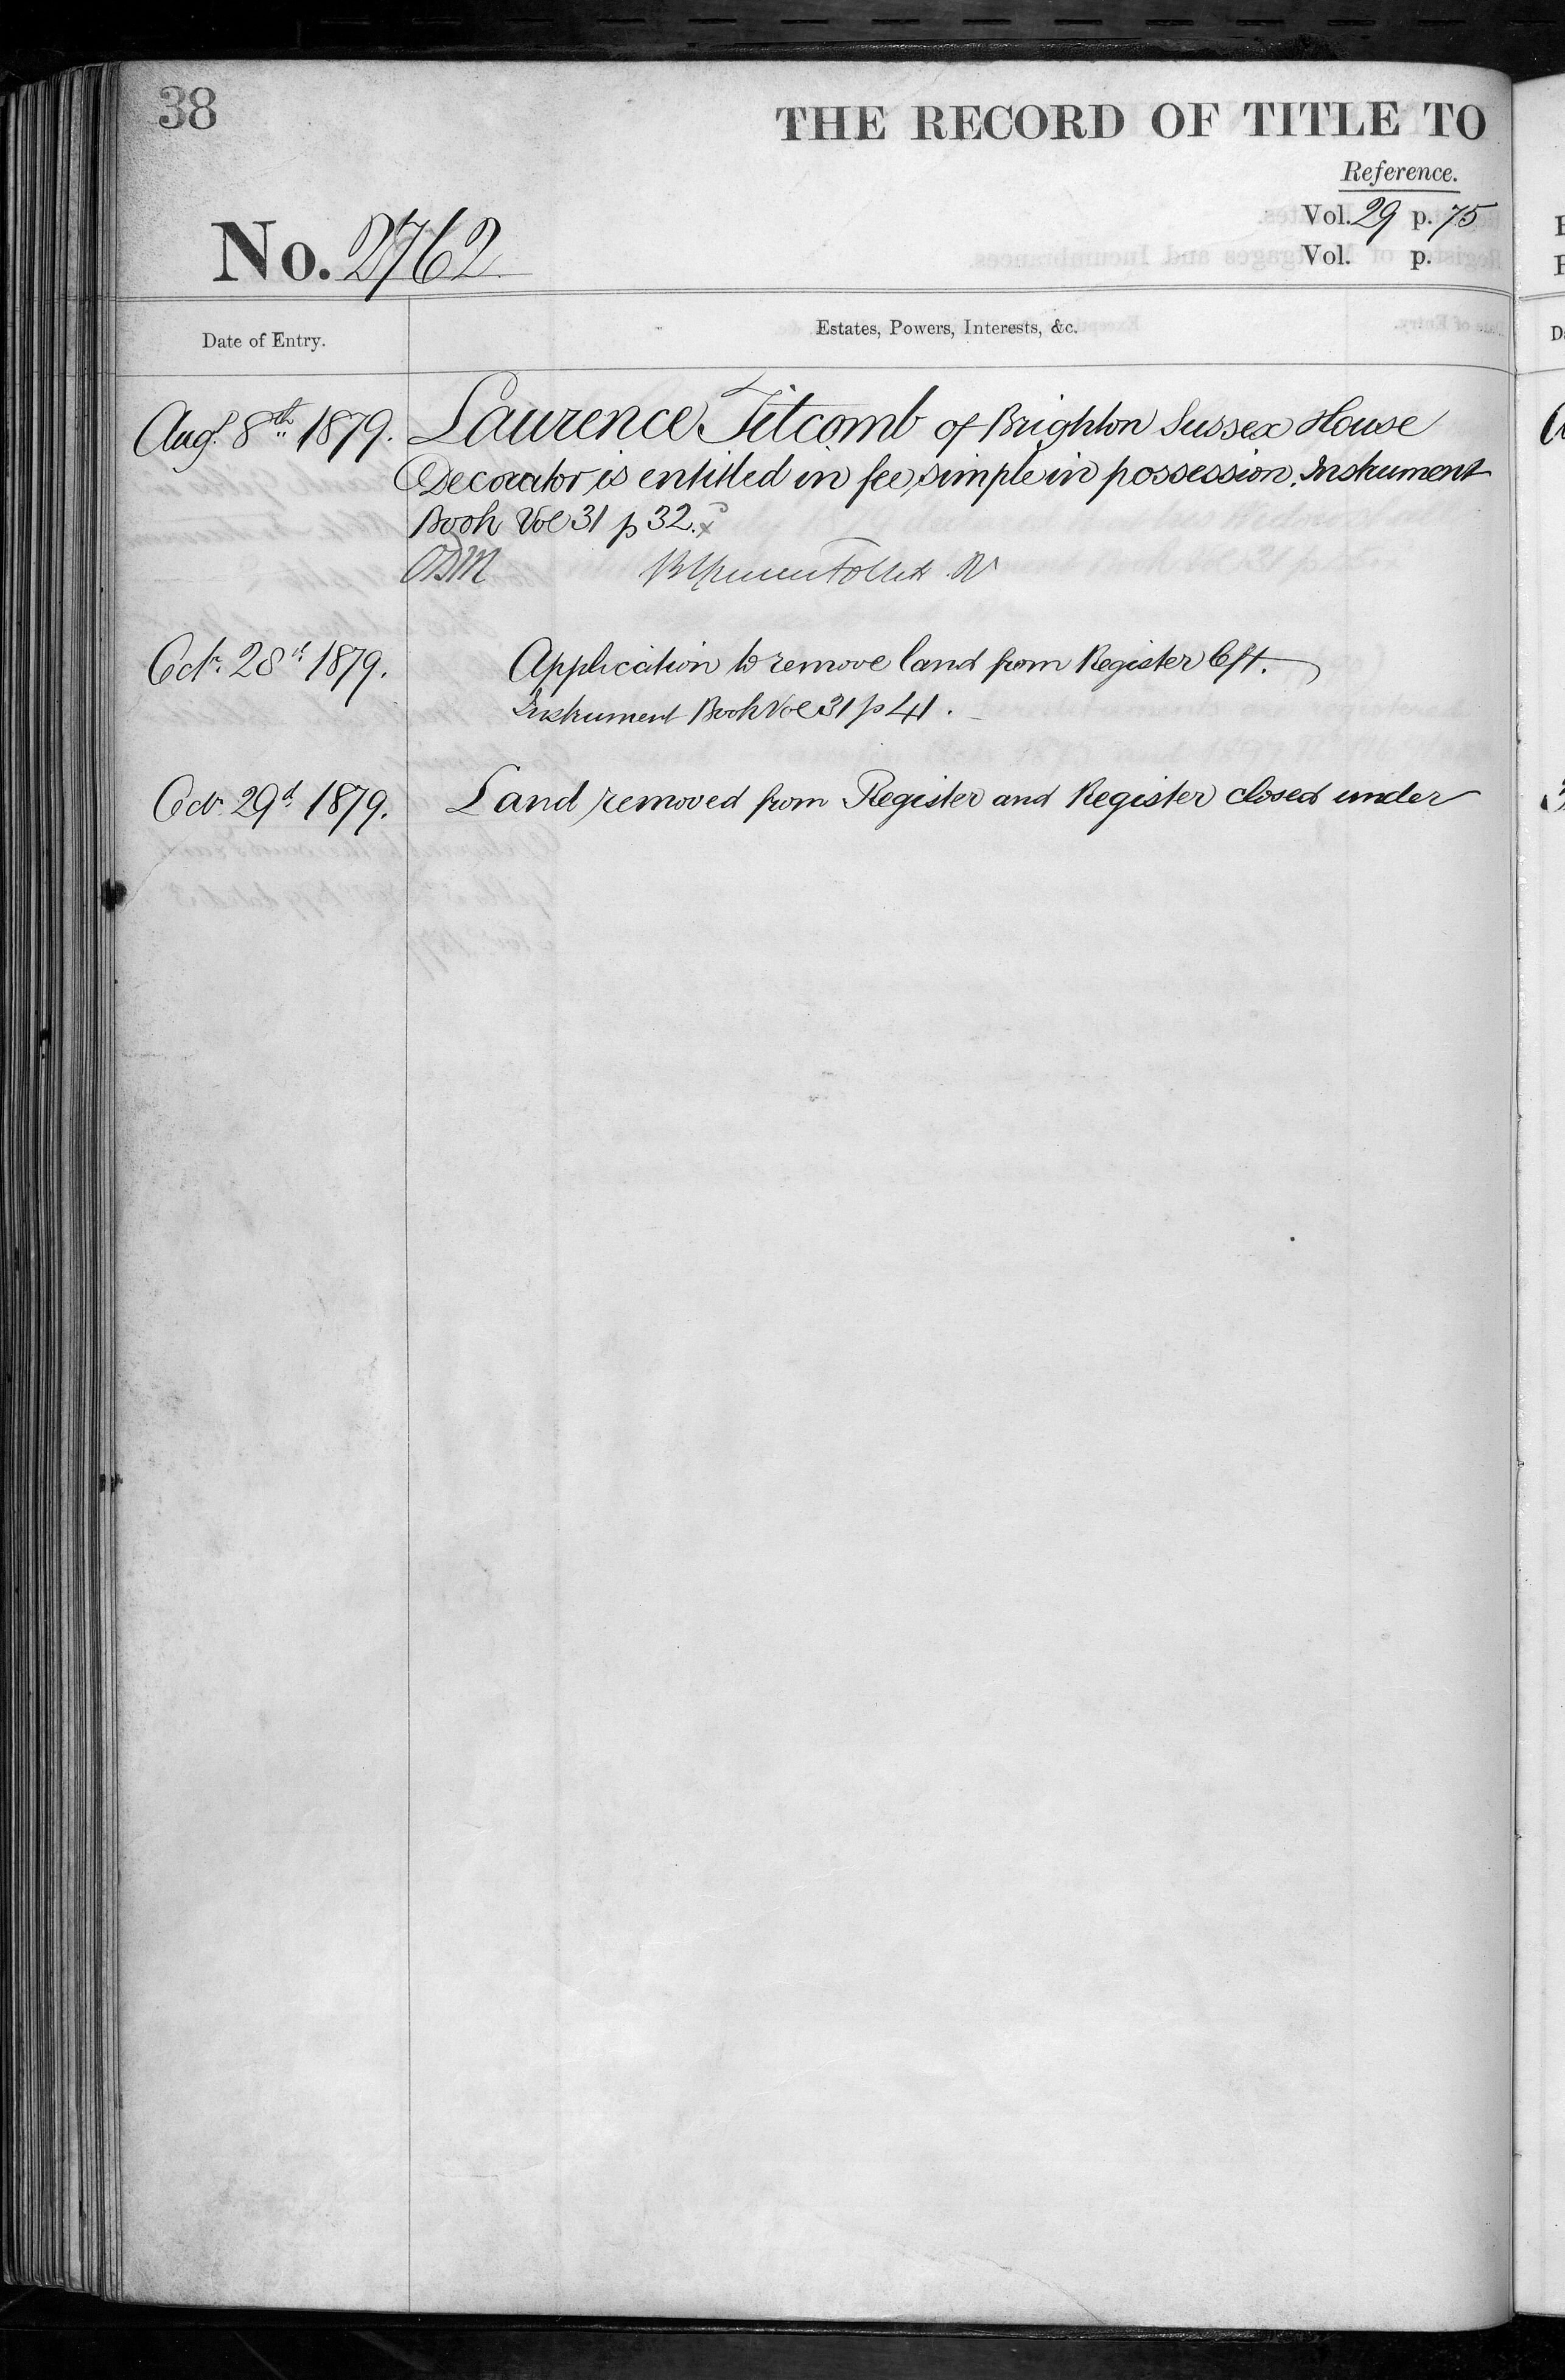 38
THE RECORD OF TITLE TO
Reference.
Vol. 29 p. 75
No. 2762
Vol. p.
Date of Entry.
Estates, Powers, Interests, &c.
Augt. 8th 1879. Laurence Titcomb of Brighton Sussex House
Decorator is entitled in fee simple in possession. Instrument
Book Vol 31 p 32.
Follett
Octr. 28th 1879. Application to remove land from Register left.
Instrument Book Vol 31 p 41.
Octr. 29th 1879. Land removed from Register and Register closed under